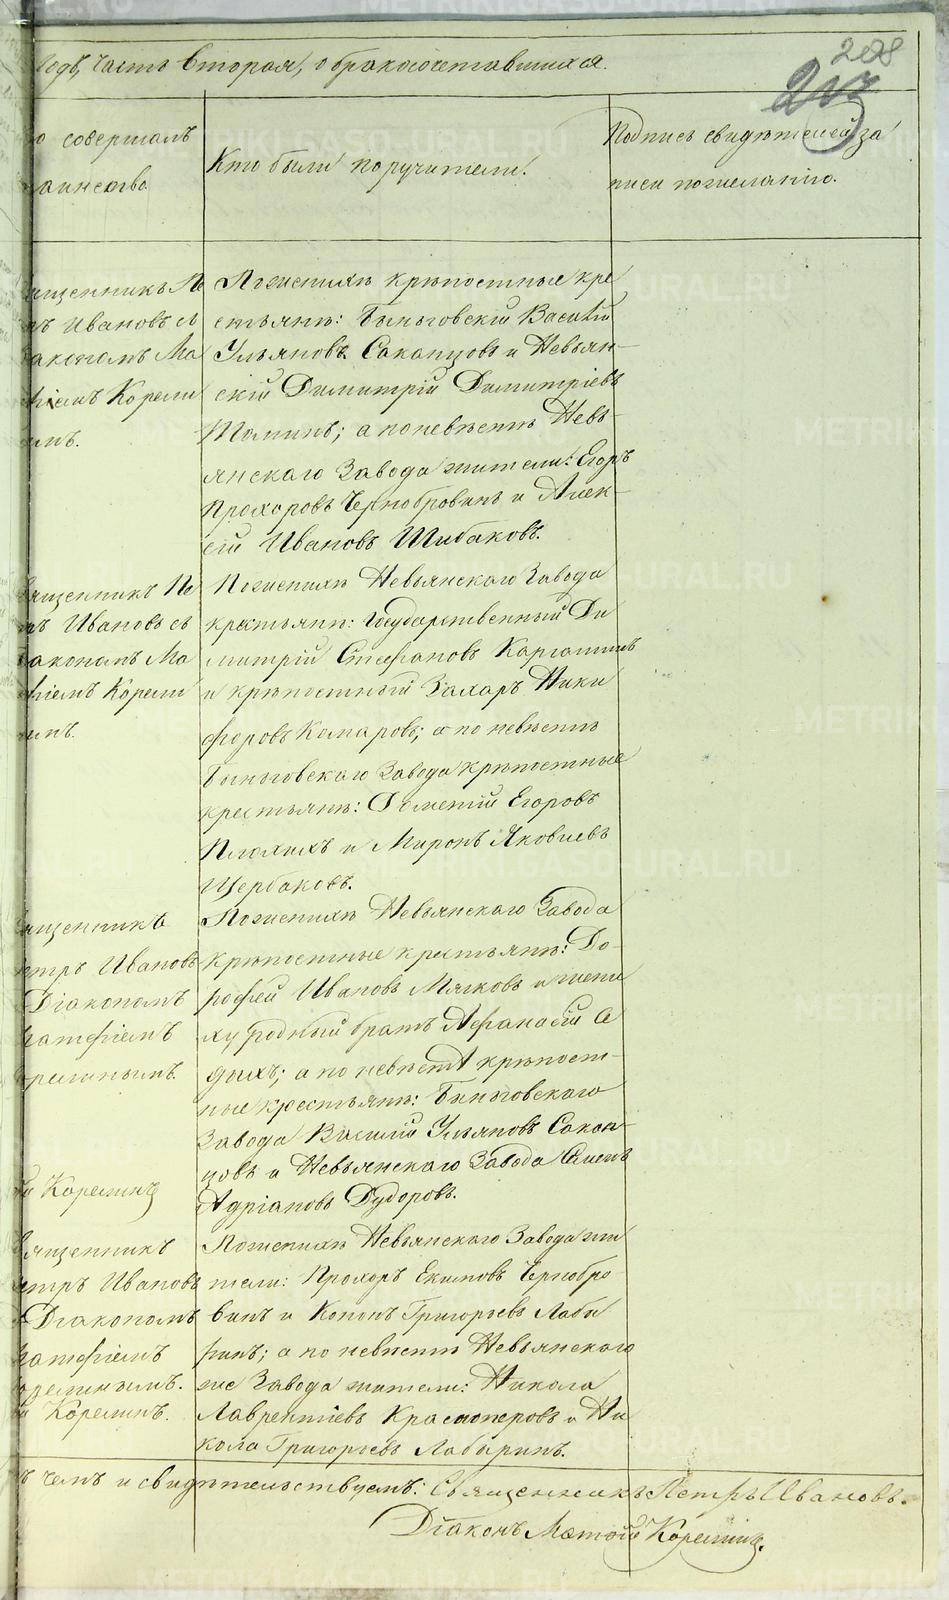 208
годъ, часть вторая, о бракосочетавшихся.
217
о совершалъ
аинство
Кто были поручители.
Подпись свидѣтелей за
писи по желанію.
ященникъ Пе
ръ Ивановъ съ
акономъ Ма
ѳіемъ Корели
ымъ.
По женихѣ крѣпостные кре
стьяне: Быньговскій Василій
Ульяновъ Саканцовъ и Невьян-
скій Димитрій Димитріевъ
Топинъ; а по невѣстѣ Невь-
янскаго Завода жители: Егоръ
Прохоровъ Чернобровинъ и Алек-
сѣй Ивановъ Шибаковъ.
вященникъ Пе
ръ Ивановъ съ
акономъ Ма
ѳіемъ Корели
ымъ.
По женихѣ Невьянскаго Завода
крестьяне: Государственный Ди
митрій Стефановъ Каргашинъ
и крѣпостный Захаръ Ники
форовъ Комаровъ; а по невѣстѣ
Быньговскаго Завода крѣпостные
крестьяне: Дементій Егоровъ
Плохихъ и Миронъ Яковлевъ
Щербаковъ.
ященникъ
етръ Ивановъ
Діакономъ
атфіемъ
орелинымъ.
й Корелинъ
По женихѣ Невьянскаго Завода
крѣпостные крестьяне: До-
рофей Ивановъ Мягковъ и жени
ху родный братъ Афанасій С
дыхъ; а по невѣстѣ крѣпост-
ные крестьяне: Быньговскаго
Завода Василій Ульяновъ Сакан-
цовъ и Невьянскаго Завода
Адріановъ Дудоровъ.
вященникъ
етръ Ивановъ
Діакономъ
атфіемъ
орелинымъ.
й Корелинъ.
По женихѣ Невьянскаго Завода жи
тели: Прохоръ Екимовъ Чернобро
винъ и Кононъ Григорьевъ Лабу
ринъ; а по невѣстѣ Невьянскаго
же Завода жители: Никола
Лаврентіевъ Красноперовъ и Ни
кола Григорьевъ Лабуринъ.
ъ чемъ и свидѣтельствуемъ: Священникъ Петръ Ивановъ.
Діаконъ Матфій Корелинъ.